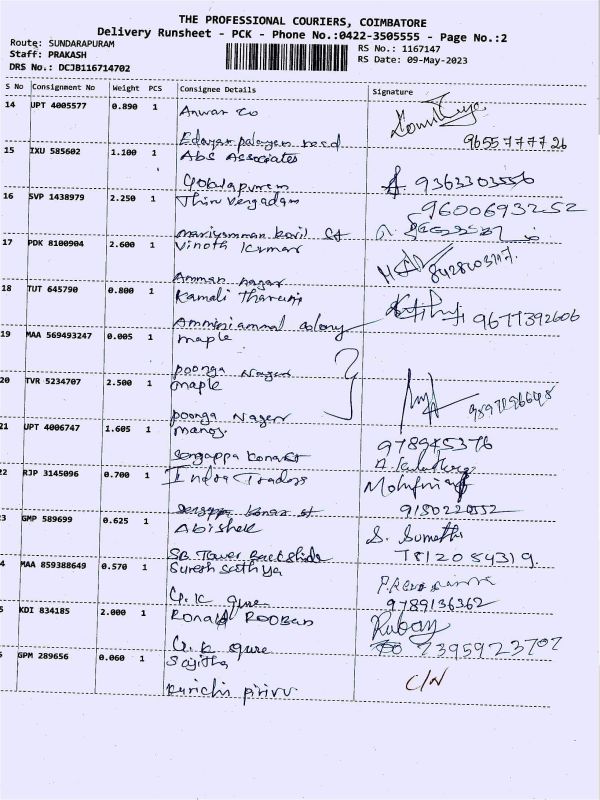 THE PROFESSIONAL COURIERS, COIMBATORE
Delivery Runsheet - PCK - Phone No.:0422-3505555 - Page No.:2
Route: SUNDARAPURAM
RS No.: 1167147
Staff: PRAKASH
RS Date: 09-May-2023
DRS No.: DCJB116714702
S No Consignment No Weight PCS Consignee Details Signature
14 UPT 4005577 0.890 1 Anwar Co
Edayar palayam road 9655777726
15 IXU 585602 1.100 1 Abs Associates
Gobalapuram 9363303556
16 SVP 1438979 2.250 1 Thiru Vengadam 9600693252
mariyamman kovil st
17 PDK 8100904 2.600 1 Vinoth Kumar
Amman nagar
18 TUT 645790 0.800 1 Kamali
Amminiammal colony 9677392606
19 MAA 569493247 0.005 1 maple
poonga Nagar
20 TVR 5234707 2.500 1 maple
poonga Nagar
21 UPT 4006747 1.605 1 manoj
978945376
22 RJP 3145096 0.700 1 Indra Traders
st 9150220552
3 GMP 589699 0.625 1 Abishek S. Sumathi
SB Tower Backside 7812084319.
4 MAA 859388649 0.570 1 Suresh Sathya
G.K 9789136362
5 KDI 834185 2.000 1 Ronald ROOBAN Rubay
G.K 7395923702
GPM 289656 0.060 1 Sajitha
Kurichi pirivu C/N